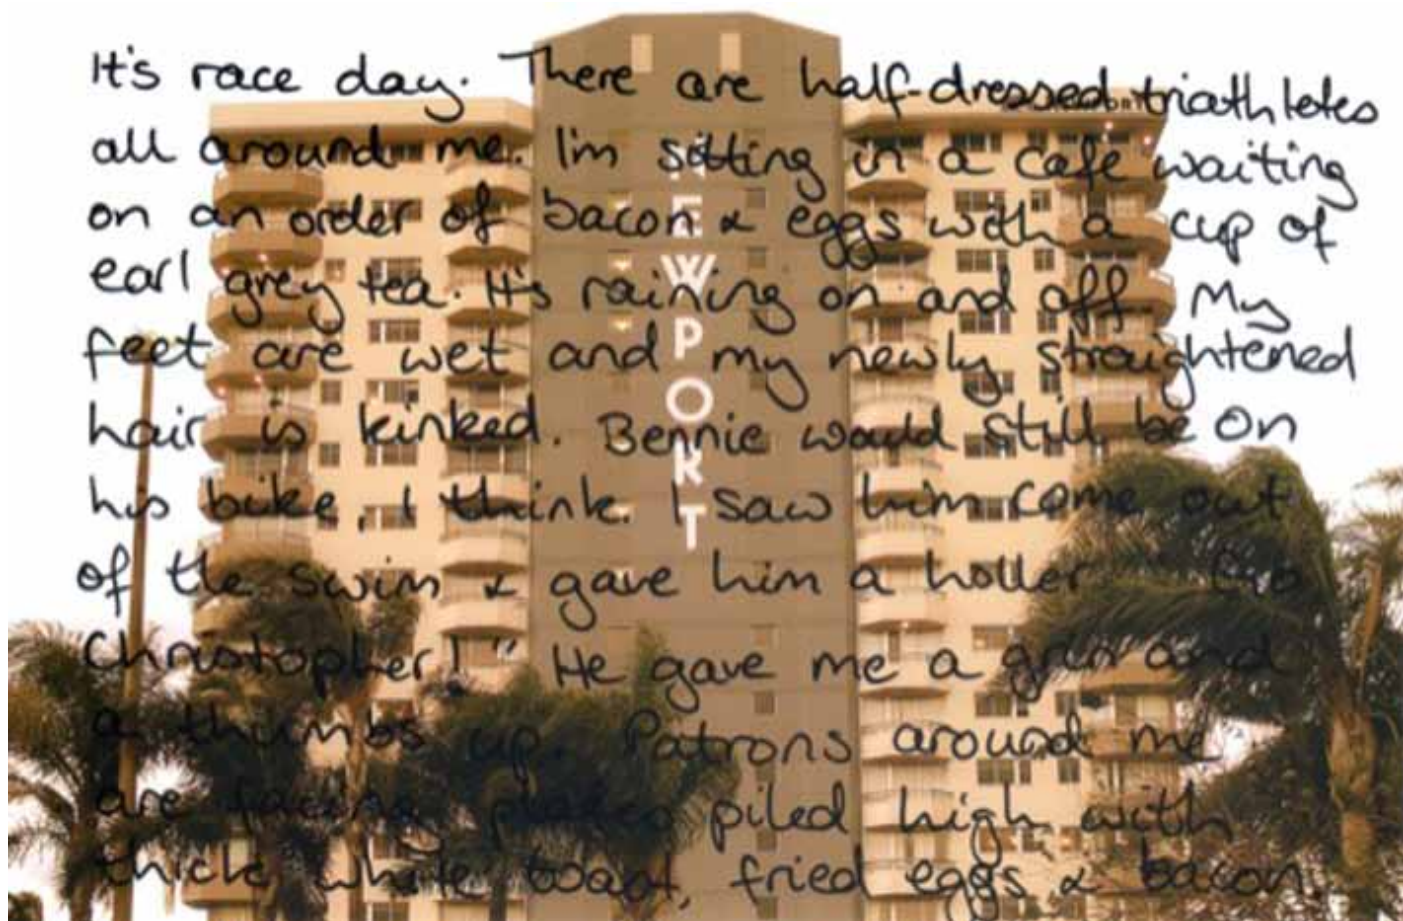 It's race day. There are half-dressed triathletes
all around me. I'm sitting in a cafe waiting
on an order of bacon & eggs with a cup of
earl grey tea. It's raining on and off. My
feet are wet and my newly straightened
hair is kinked. Bennie would still be on
his bike, I think. I saw him come out
of the swim & gave him a holler "Go
Christopher!" He gave me a grin and
a thumbs up. Patrons around me
are facing plates piled high with
thick white toast, fried eggs & bacon.
NEWPORT